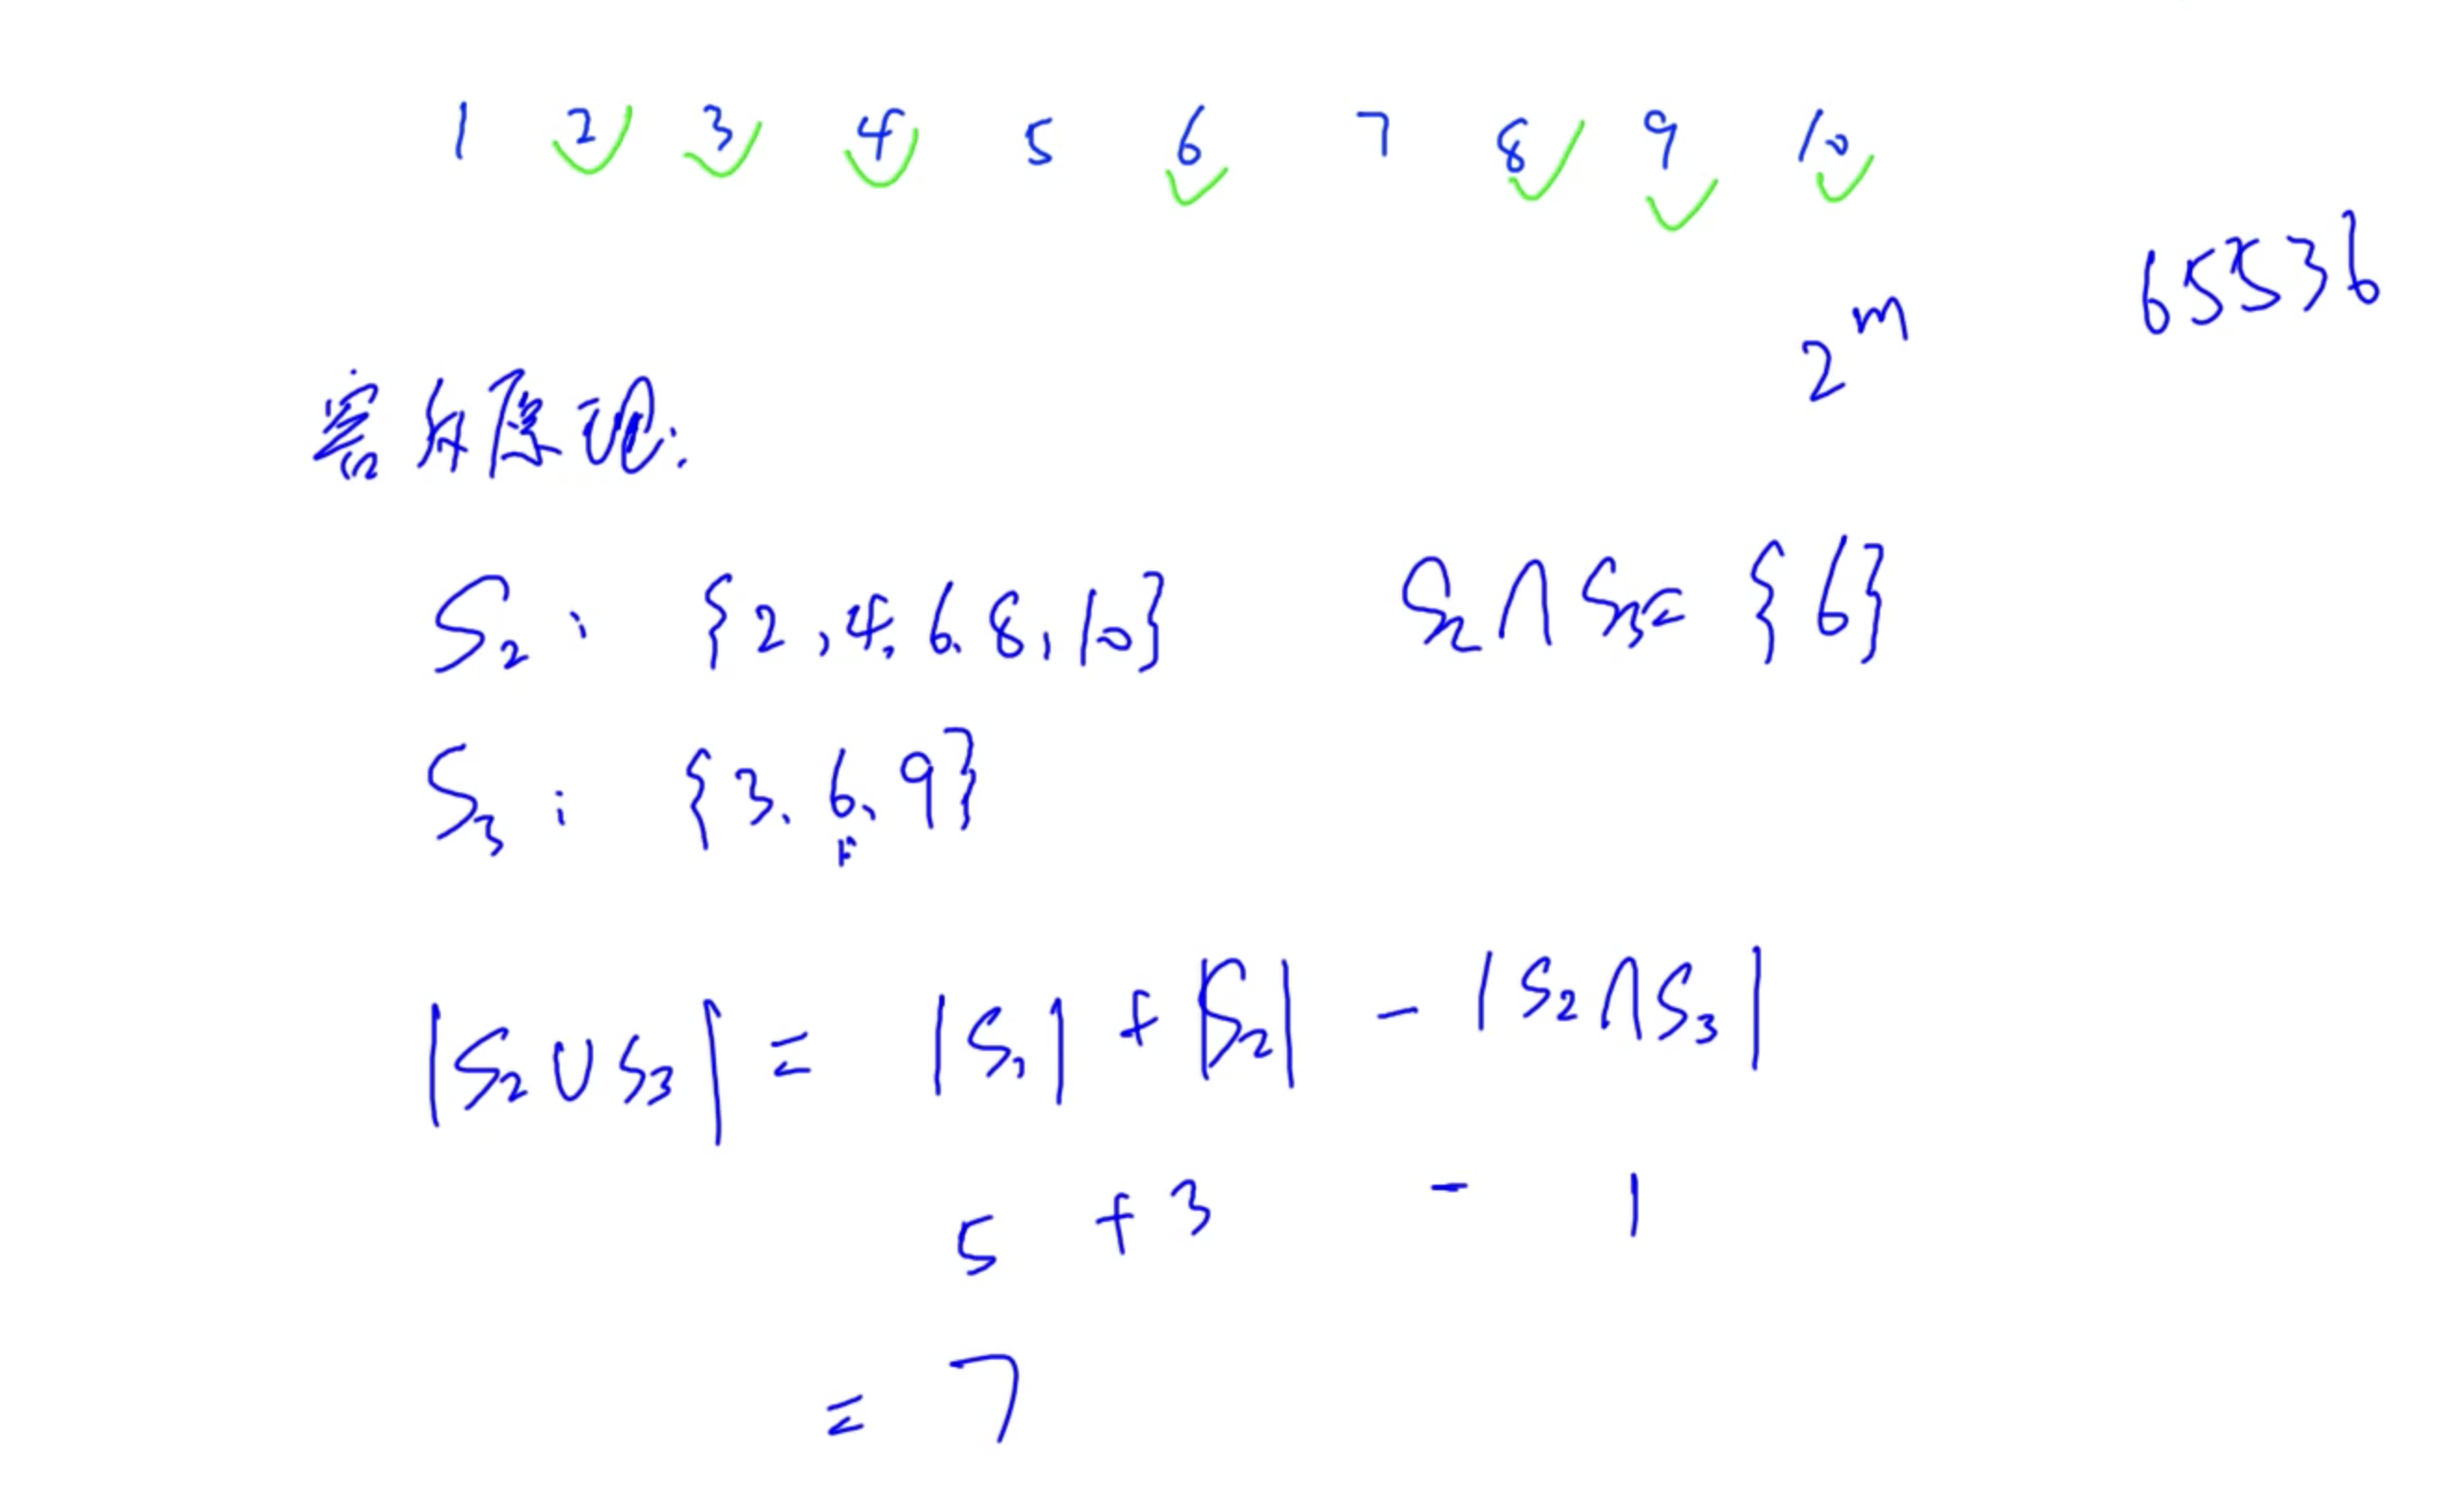 1 2 3 4 5 6 7 8 9 10
65536
2^m
容斥原理:
S₂: {2,4,6,8,10} S₂∩S₃= {6}
S₃: {3.6.9}
|S₂∪S₃| = |S₁| + |S₂| - |S₂∩S₃|
5 + 3 - 1
= 7